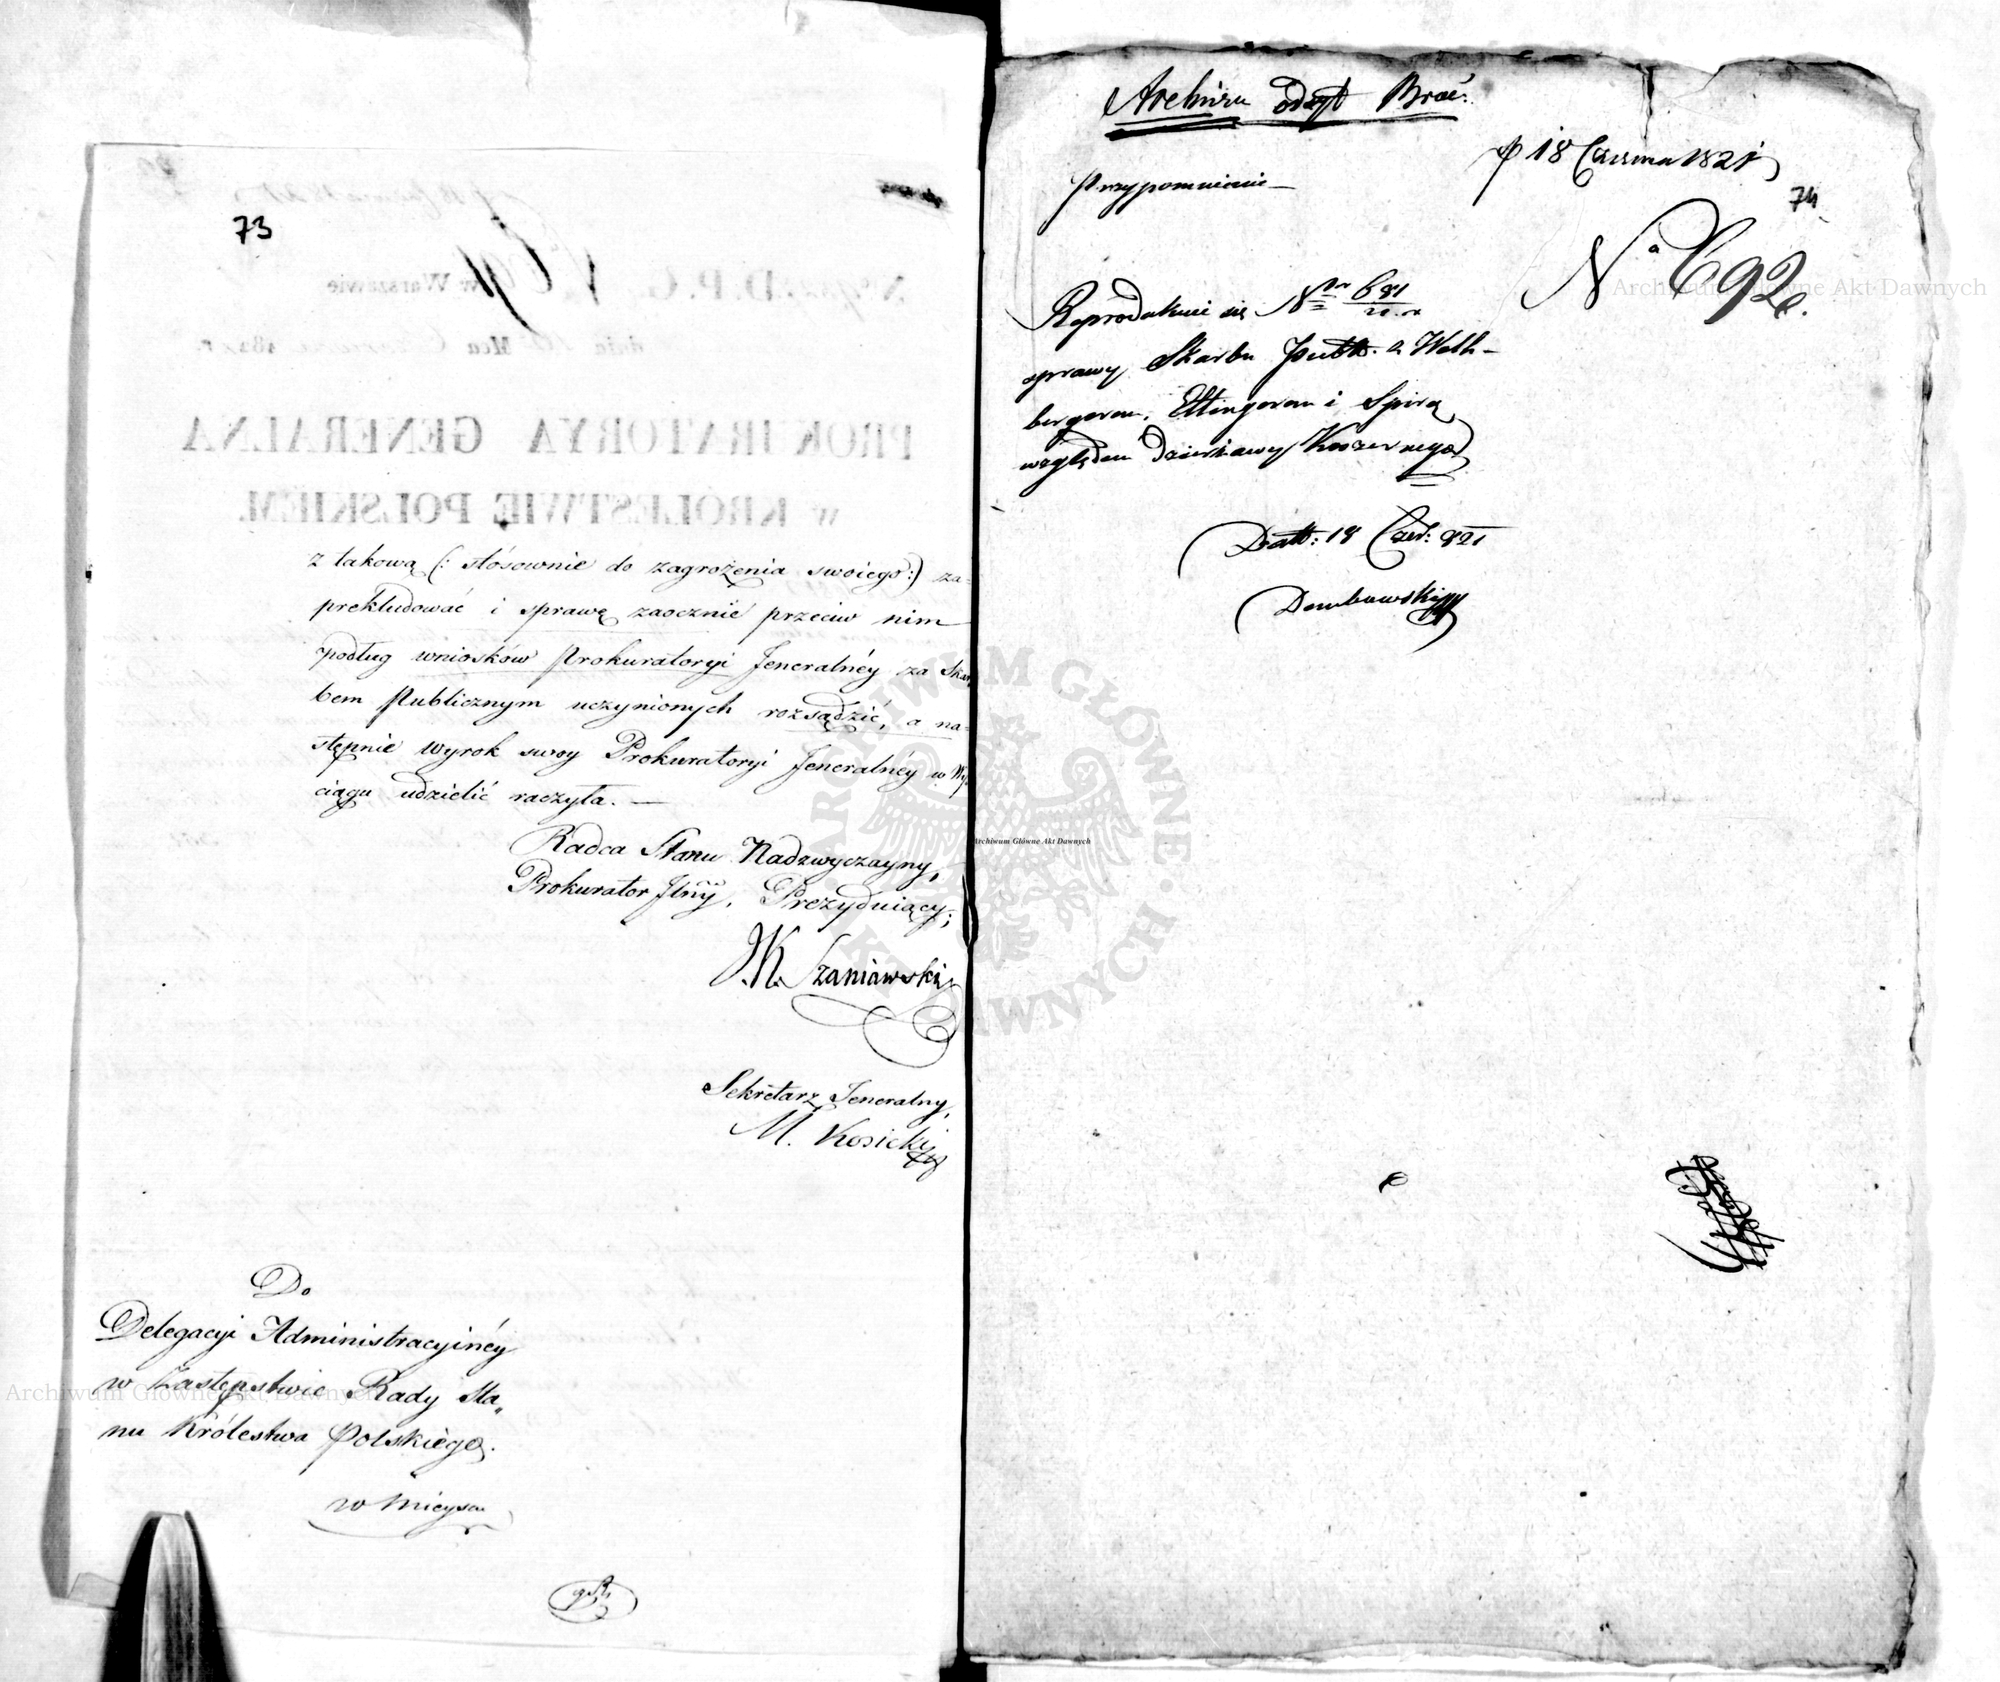 73
z takową (: stósownie do zagrożenia swoiego :) za-
prekludować i sprawę zaocznie przeciw nim
podług wniosków Prokuratoryi Jeneralnéy za Skar
bem Publicznym uczynionych rozsądzić, a na-
stępnie wyrok swoy Prokuratoryi Jeneralnéy w Wy
ciągu udzielić raczyła. —
Radca Stanu Nadzwyczayny,
Prokurator Jlny, Prezyduiący;
J.K. Szaniawski
Sekretarz Jeneralny,
M. Kosicki
Do
Delegacyi Administracyinéy
w Zastępstwie Rady Sta„
nu Królestwa Polskiégo.
w Mieyscu
PROKURATORYA GENERALNA
w KROLESTWIE POLSKIEM.
w Warszawie
p 18 Czerwca 1821
74
Przypomnienie —
No 692.
Reprodukuie się Nr 681
sprawy Skarbu Publ. z Weth-
bergerem, Ettingerem i Spirą
względem Dzierżawy Koszernego
Datt: 18 Czer: 821
Dembowski
ARCHIWUM GŁÓWNE AKT DAWNYCH
Archiwum Główne Akt Dawnych
Archiwum Główne Akt Dawnych
Archiwum Główne Akt Dawnych